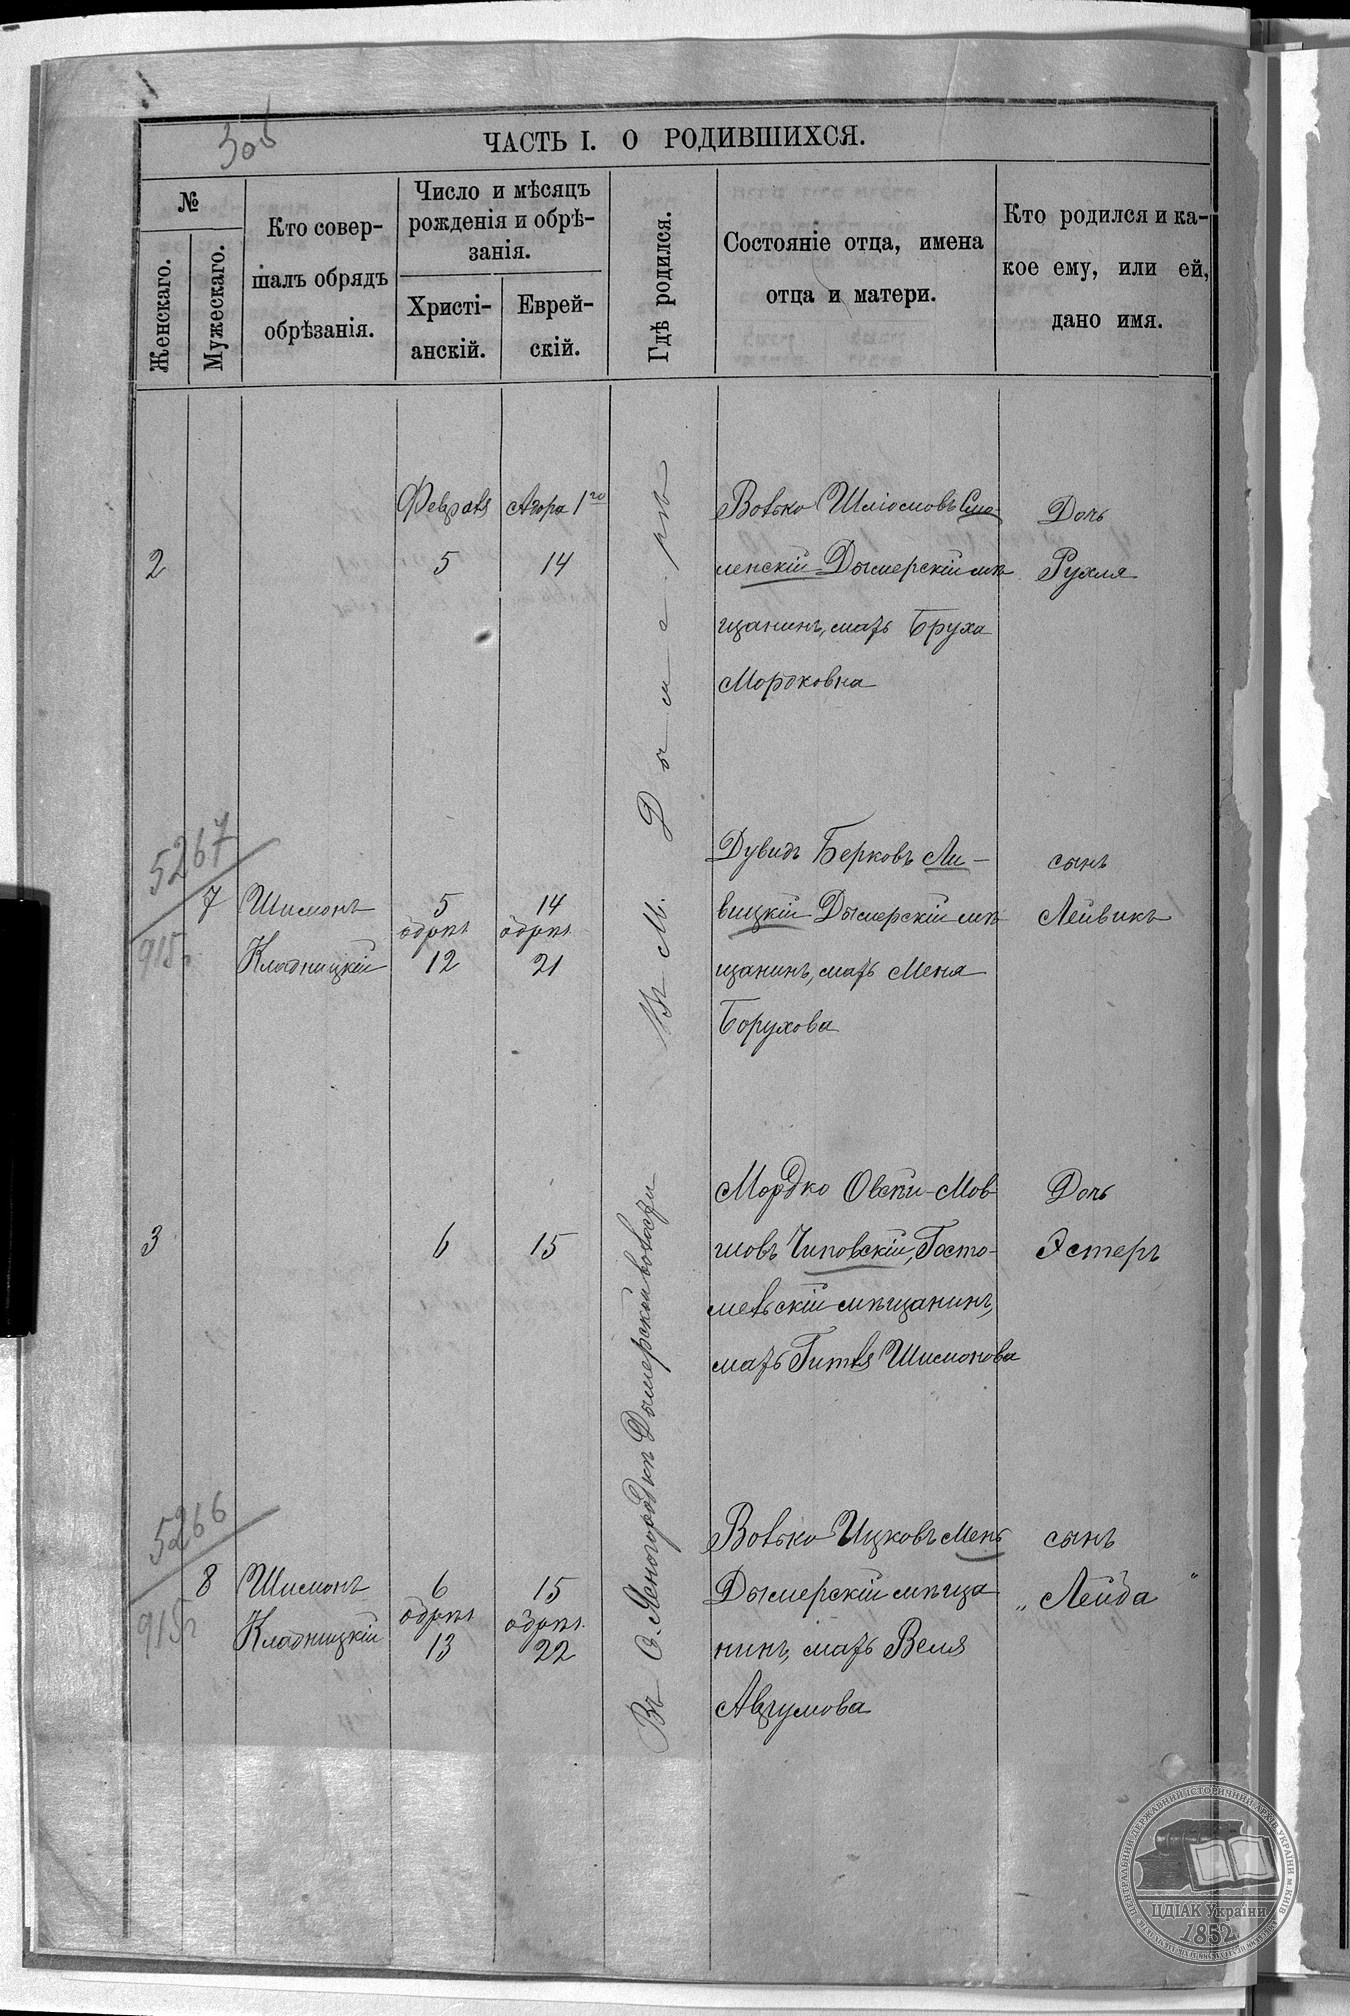 ЧАСТЬ I. О РОДИВШИХСЯ.
№
Женскаго.
Мужескаго.
Кто совер-
шалъ обрядъ
обрѣзанія.
Число и мѣсяцъ
рожденія и обрѣ-
занія.
Христі-
анскій.
Еврей-
скій.
Гдѣ родился.
Состояніе отца, имена
отца и матери.
Кто родился и ка-
кое ему, или ей,
дано имя.
Февраля
Адора 1го
2
5
14
Въ М. Дымерѣ
Волько Шліомовъ Смо-
ленскій Дымерскій мѣ
щанинъ, мать Бруха
Мордковна
Дочь
Рухля
5267
915г
7
Шимонъ
Кладницкій
5
обрѣз
12
14
обрѣз.
21
Дувидъ Берковъ Ли-
вицкій Дымерскій мѣ
щанинъ, мать Меня
Борухова
сынъ
Лейвикъ
3
6
15
Въ С. Ясногородкѣ Дымерской волости
Мордко Овсѣй-Мов-
шовъ Чиповскій, Госто-
мельскій мѣщанинъ,
мать Гитля Шимонова
Дочь
Эстеръ
5266
915г
8
Шимонъ
Кладницкій
6
обрѣз
13
15
обрѣз.
22
Волько Ицковъ Мень
Дымерскій мѣща
нинъ, мать Веля
Аврумова
сынъ
„Лейба"
ЦДІАК України
1852